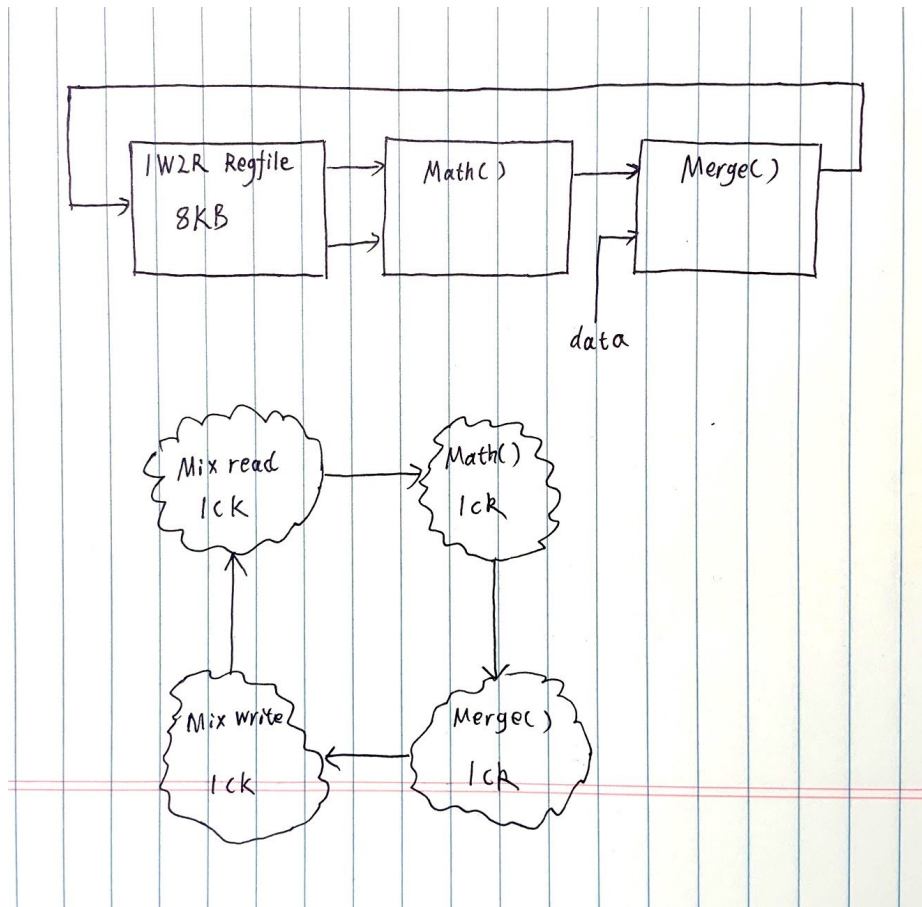 1W2R Regfile
8KB
Math()
Merge()
data
Mix read
1ck
Math()
1ck
Mix write
1ck
Merge()
1ck